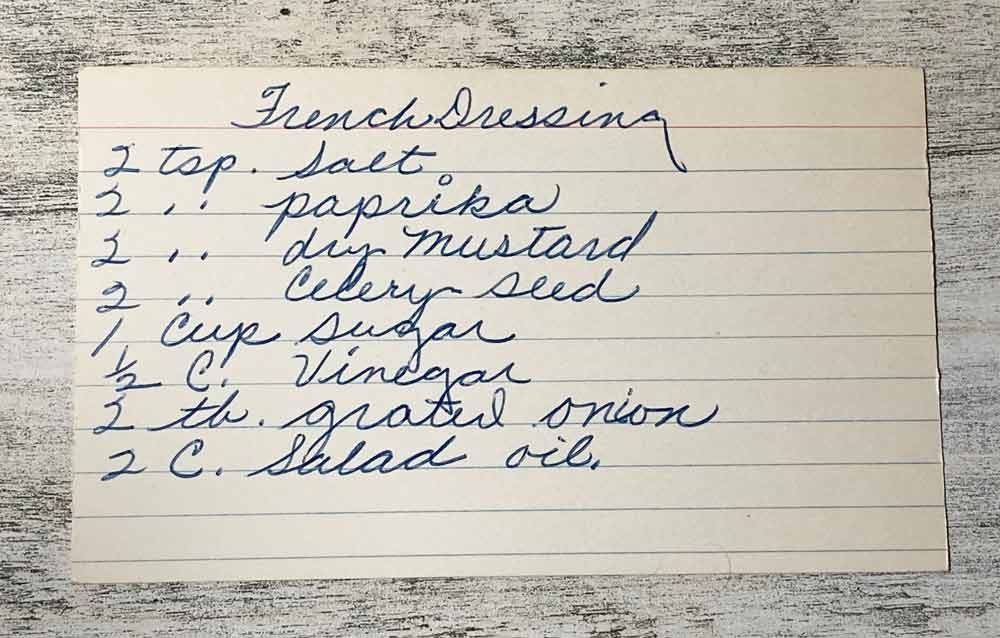 French Dressing
2 tsp. salt
2 ,, paprika
2 ,, dry mustard
2 ,, Celery seed
1 Cup sugar
1/2 C. Vinegar
2 tb. grated onion
2 C. Salad oil.